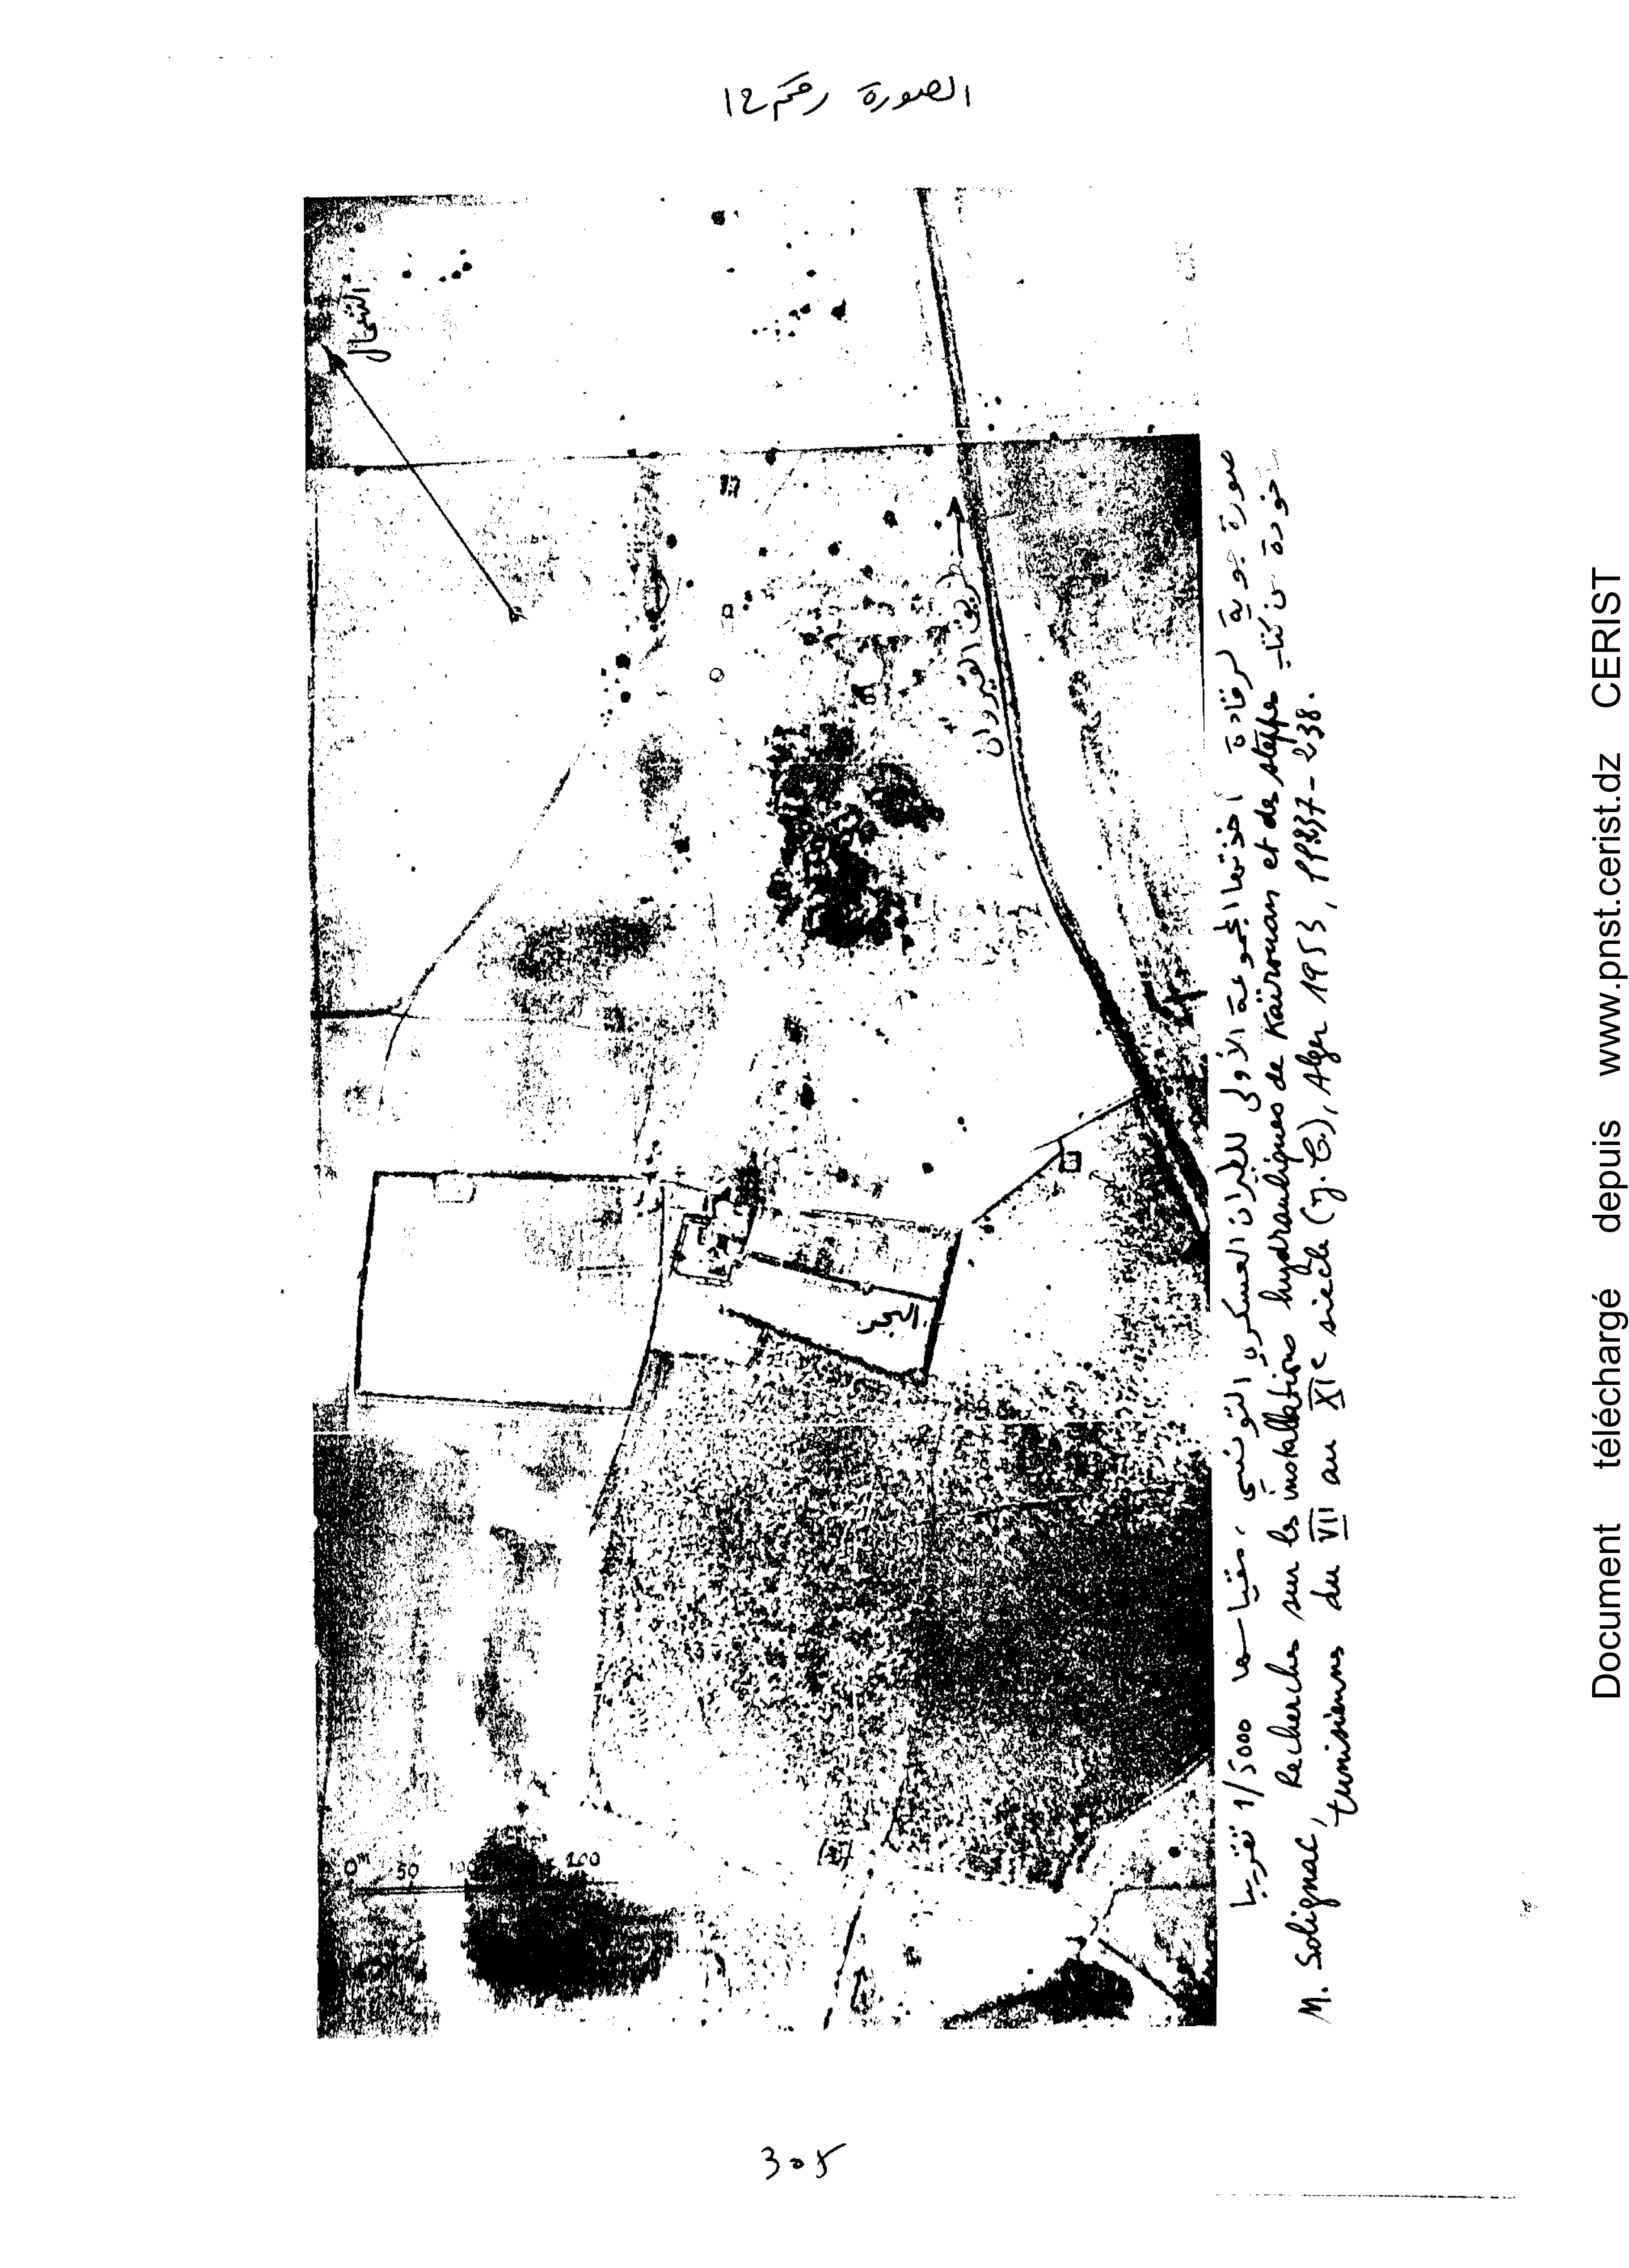 الصورة رقم 12
الشمال
طريق القيروان
البحر
0m 50 100 200
صورة جوية لرقادة أخذتها المجموعة الأولى للطيران العسكري التونسي ، مقياسها 1/5000 تقريبا
مأخوذة من كتاب
M. Solignac, Recherches sur les installations hydrauliques de Kairouan et des steppes
tunisiennes du VII au XIe siècle (J.C), Alger 1953, PP237-238.
305
Document téléchargé depuis www.pnst.cerist.dz CERIST